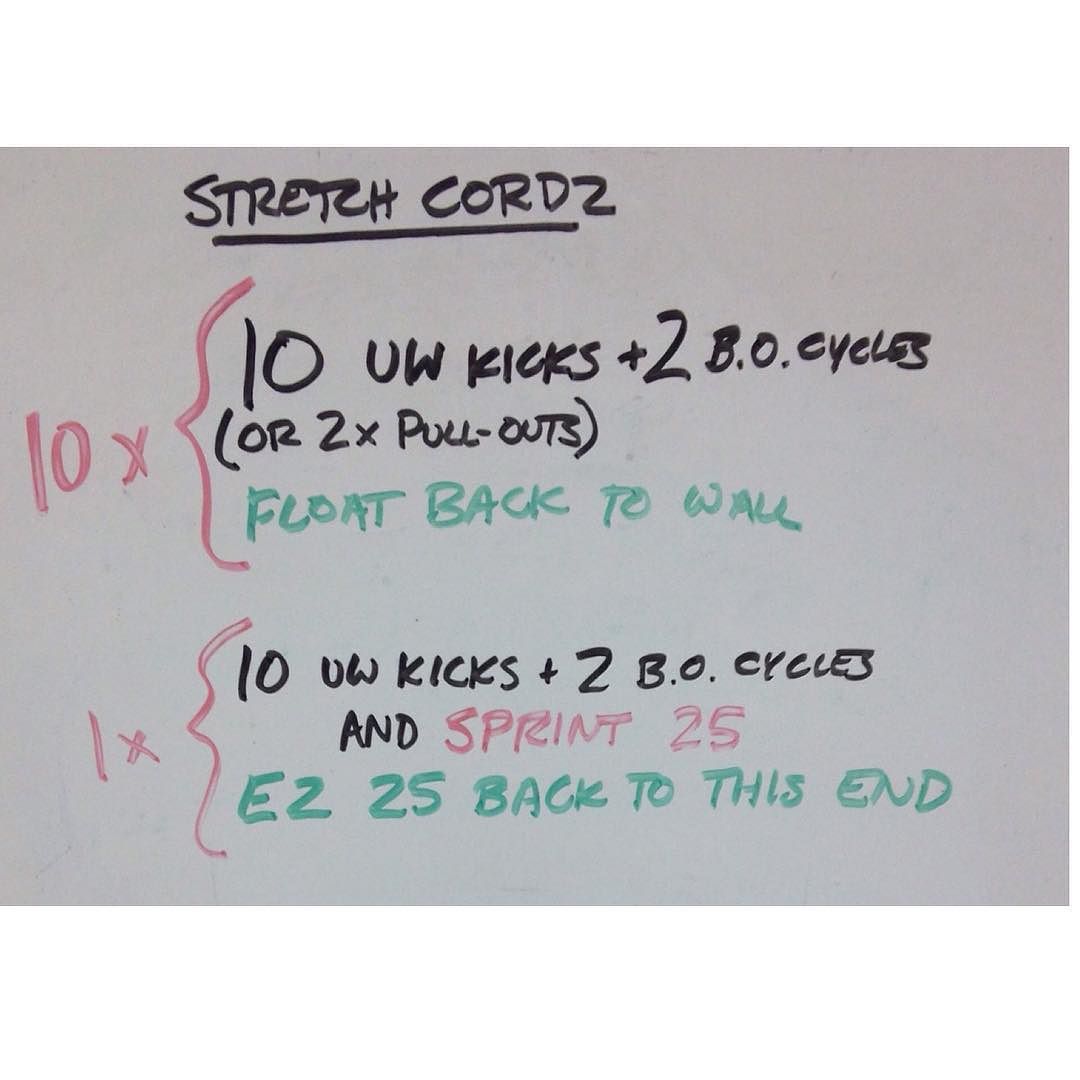 STRETCH CORDZ
10 x
10 UW KICKS + 2 B.O. CYCLES
(OR 2x PULL-OUTS)
FLOAT BACK TO WALL
1 x
10 UW KICKS + 2 B.O. CYCLES
AND SPRINT 25
EZ 25 BACK TO THIS END